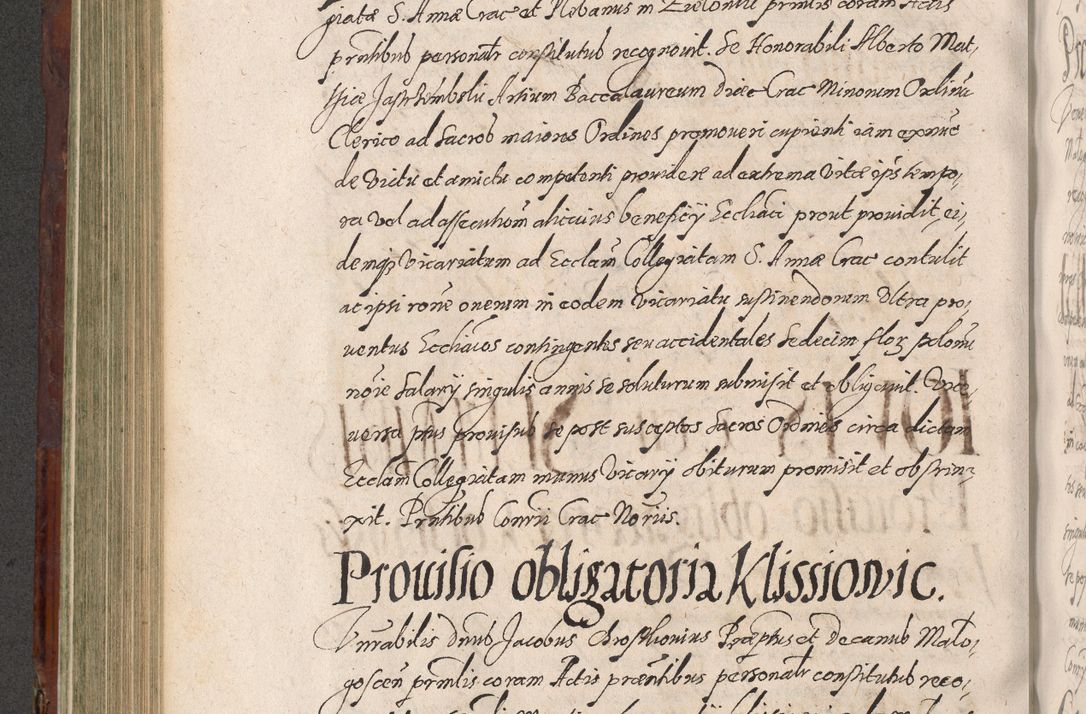 giatæ S. Annæ Crac et Plebanus in Zielonki prmlis coram Actis
prntibus personalr constitutus recognouit. Se Honorabili Alberto Mat,
thiæ Jastrzembski Artium Baccalaureum Dioec Crac Minorum Ordinũ
Clerico ad Sacros maiores Ordines promoueri cupienti iam ex nunc
de victu et amictu competenti prouidere ad extrema vitæ ips tempo,
ra vel ad assecutiom alicuius beneficij Eccliaci prout prouidit, ei,
demq Vicariatum ad Ecclam Collegiatam S. Annæ Crac contulit
ac ipsi rone onerum in eodem vicariatu sustinendorum Vltra pro,
uentus Ecclaicos contingentes seu accidentales Sedecim flor polonũ
noie Salarij singulis annis se soluturum submisit et obligauit. Vice
versa ptus prouisus se post susceptos Sacros Ordines circa dictam
Ecclam Collegiatam munus Vicarij obiturum promisit et obstrin,
xit. Prntibus Comrii Crac Norijs.
Prouisio obligatoria Klissiowic.
Vnrabilis dnus Jacobus Præptus et Decanus Mało,
goscen prmlis coram Actis præntibus personalr constitutus reco,